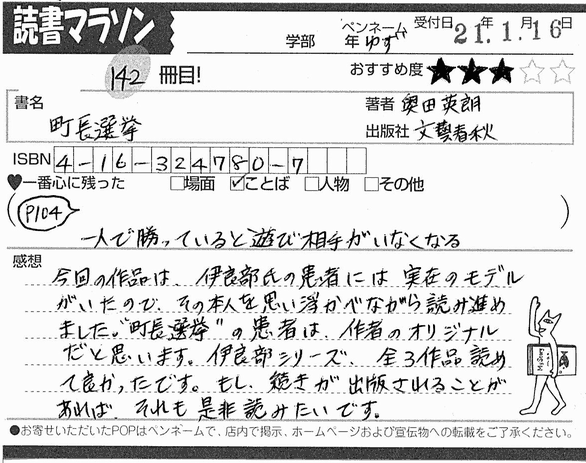 読書マラソン
学部 年 ペンネーム ゆず 受付日 21年 1月 16日
142 冊目!
おすすめ度 ★★★☆☆
書名 町長選挙
著者 奥田英朗
出版社 文藝春秋
ISBN 4-16-324780-7
♥一番心に残った □場面 ☑ことば □人物 □その他
P104
一人で勝っていると遊び相手がいなくなる
感想
今回の作品は、伊良部氏の患者には実在のモデル
がいたので、その本人を思い浮かべながら読み進め
ました。"町長選挙"の患者は、作者のオリジナル
だと思います。伊良部シリーズ、全3作品読め
て良かったです。もし、続きが出版されることが
あれば、それも是非読みたいです。
●お寄せいただいたPOPはペンネームで、店内で掲示、ホームページおよび宣伝物への転載をご了承ください。